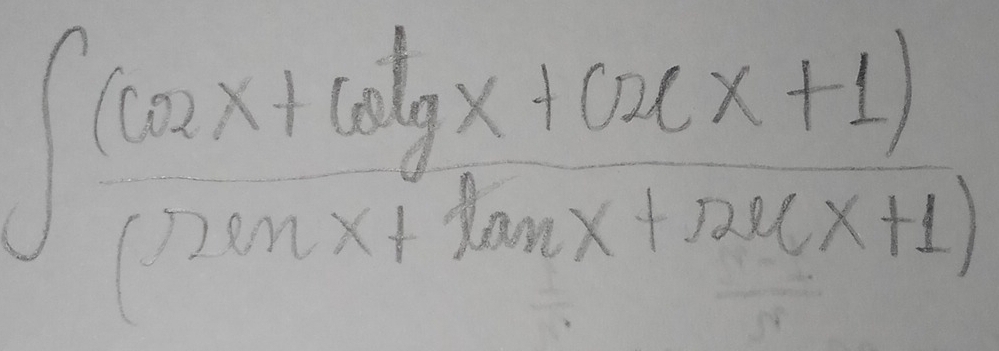 ∫ (cos x + cotg x + csc x + 1)
(sen x + tan x + sec x + 1)